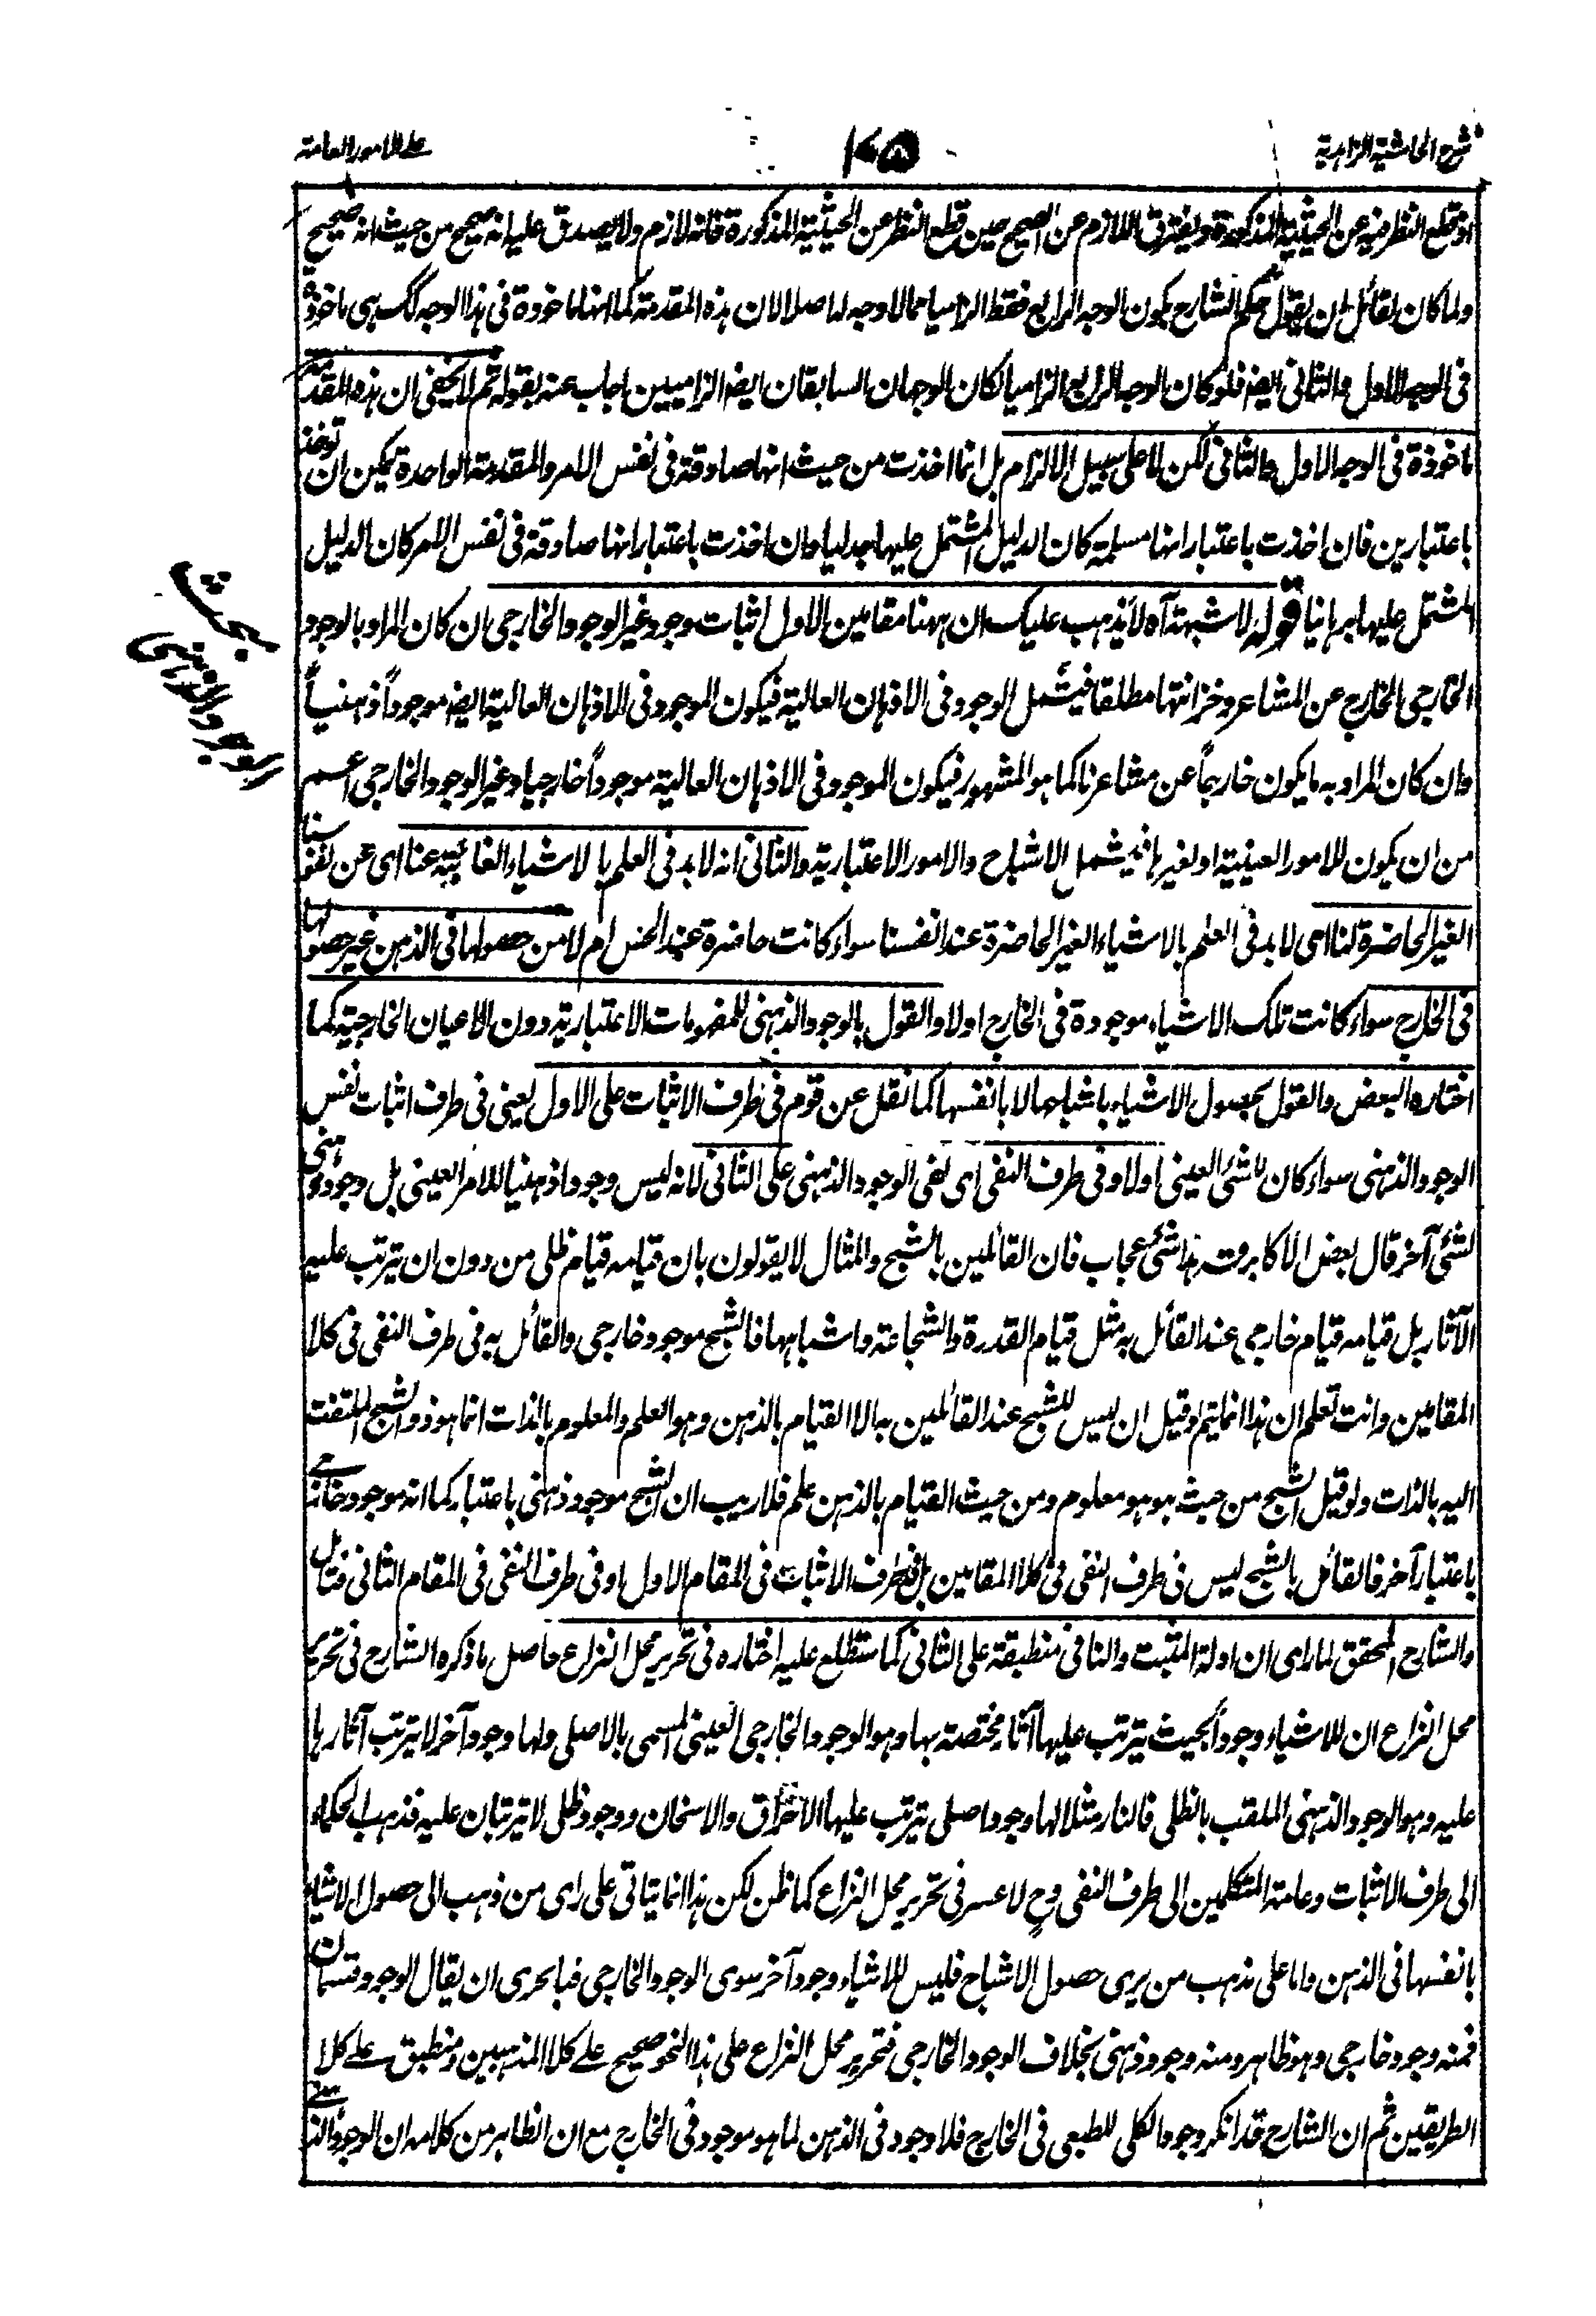 شرح الحاشية الزاهدية
على الامور العامة
اذ قطع النظر فيه عن الحيثية المذكورة ويفترق اللازم عن الصحيح حين قطع النظر عن الحيثية المذكورة فانه لازم ولا يصدق عليه انه صحيح من حيث انه صحيح
ولما كان لقائل ان يقول حكم الشارح بكون الوجه الرابع فقط الزاميا مما لا وجه له اصلا لان هذه المقدمة كما انها ماخوذة في هذا الوجه كك هي ماخوذة
في الوجه الاول والثاني ايضا فلو كان الوجه الرابع الزاميا لكان الوجهان السابقان ايضا الزاميين اجاب عنه بقوله ثم لا يخفى ان هذه المقدمة
ماخوذة في الوجه الاول والثاني لكن لا على سبيل الالزام بل انما اخذت من حيث انها صادقة في نفس الامر والمقدمة الواحدة يمكن ان توخذ
باعتبارين فان اخذت باعتبار انها مسلمة كان الدليل المشتمل عليها جدليا وان اخذت باعتبار انها صادقة في نفس الامر كان الدليل
المشتمل عليها برهانيا قوله لا شبهة آه لا يذهب عليك ان ههنا مقامين الاول اثبات وجود غير الوجود الخارجي ان كان المراد بالوجود
بحث الوجود الذهني
الخارجي الخارج عن المشاعر وخزانتها مطلقا فيشمل الوجود في الاذهان العالية فيكون الموجود في الاذهان العالية ايضا موجوداً ذهنياً
وان كان المراد به ما يكون خارجاً عن مشاعرنا كما هو المشهور فيكون الموجود في الاذهان العالية موجوداً خارجيا وغير الوجود الخارجي اعم
من ان يكون للامور العينية او لغيرها فيشمل الاشباح والامور الاعتبارية والثاني انه لا بد في العلم بالاشياء الغائبة عنا اى عن نفوسنا
الغير الحاضرة لنا اى لا بد في العلم بالاشياء الغير الحاضرة عند انفسنا سواء كانت حاضرة عند الحس ام لا من حصولها في الذهن غير حصولها
في الخارج سواء كانت تلك الاشياء موجودة في الخارج اولا والقول بالوجود الذهني للمفهومات الاعتبارية دون الاعيان الخارجية كما
اختاره البعض والقول بحصول الاشياء باشباحها لا بانفسها كما نقل عن قوم في طرف الاثبات على الاول يعني في طرف اثبات نفس
الوجود الذهني سواء كان للشئ العيني اولا وفي طرف النفى اى نفى الوجود الذهني على الثاني لانه ليس وجودا ذهنيا للامر العيني بل وجود ذهني
لشئ آخر قال بعض الاكابر قده هذا شئ عجاب فان القائلين بالشبح والمثال لا يقولون بان قيامه قيام ظلي من دون ان يترتب عليه
الآثار بل قيامه قيام خارجي عند القائل به مثل قيام القدرة والشجاعة واشباهها فالشبح موجود خارجي والقائل به في طرف النفى في كلا
المقامين وانت تعلم ان هذا انما يتم لو قيل ان ليس للشبح عند القائلين به الا القيام بالذهن وهو العلم والمعلوم بالذات انما هو ذو الشبح الملتفت
اليه بالذات ولو قيل الشبح من حيث هو هو معلوم ومن حيث القيام بالذهن علم فلا ريب ان الشبح موجود ذهني باعتبار كما انه موجود خارجي
باعتبار آخر فالقائل بالشبح ليس في طرف النفى في كلا المقامين بل في طرف الاثبات في المقام الاول او في طرف النفى في المقام الثاني فتامل
والشارح المحقق لما راى ان ادلة المثبت والنافي منطبقة على الثاني كما ستطلع عليه اختاره في تحرير محل النزاع حاصل ما ذكره الشارح في تحرير
محل النزاع ان للاشياء وجوداً بحيث يترتب عليها آثار مختصة بها وهو الوجود الخارجي العيني المسمى بالاصلي ولها وجود آخر لا يترتب آثارها
عليه وهو الوجود الذهني الملقب بالظلي فالنار مثلا لها وجود اصلي يترتب عليها الاحراق والاسخان ووجود ظلي لا يترتبان عليه فذهب الحكماء
الى طرف الاثبات وعامة المتكلمين الى طرف النفى وح لا عسر في تحرير محل النزاع كما ظن لكن هذا انما يتاتى على راى من ذهب الى حصول الاشياء
بانفسها في الذهن واما على مذهب من يرى حصول الاشباح فليس للاشياء وجود آخر سوى الوجود الخارجي فبالحرى ان يقال الوجود قسمان
فمنه وجود خارجي وهو ظاهر ومنه وجود ذهني بخلاف الوجود الخارجي فتحرير محل النزاع على هذا النحو صحيح على كلا المذهبين ومنطبق على كلا
الطريقين ثم ان الشارح قد انكر وجود الكلي الطبعي في الخارج فلا وجود في الذهن لما هو موجود في الخارج مع ان الظاهر من كلامه ان الوجود الذهني